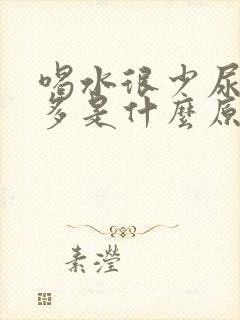 喝水很少尿
多是什麼原
素瀅